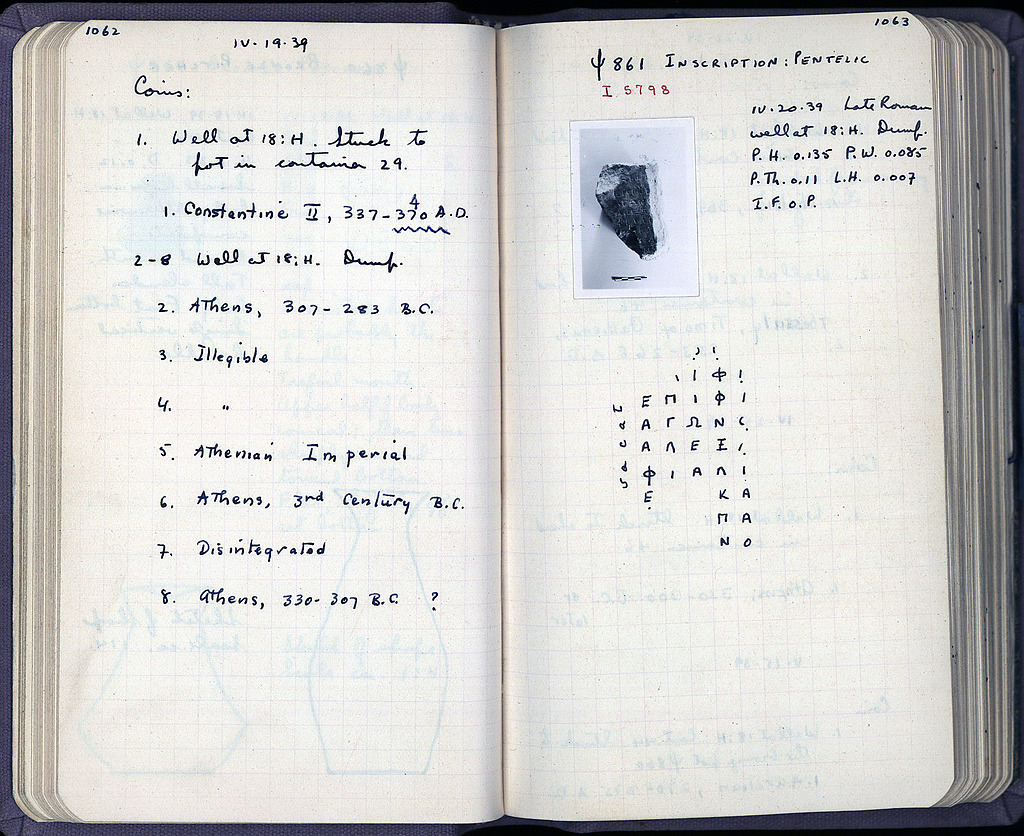 1062
IV-19-39
Coins:
1. Well at 18:H. Stuck to
pot in container 29.
1. Constantine II, 337-340 A.D.
4
2-8 Well at 18:H. Dump.
2. Athens, 307-283 B.C.
3. Illegible
4. "
5. Athenian Imperial
6. Athens, 3rd Century B.C.
7. Disintegrated
8. Athens, 330-307 B.C. ?
1063
Ψ 861 INSCRIPTION: PENTELIC
I 5798
IV-20-39 Late Roman
well at 18:H. Dump.
P.H. 0.135 P.W. 0.085
P.Th. 0.11 L.H. 0.007
I.F.O.P.
Ι Φ
Ε Π Ι Φ Ι
Α Γ Ω Ν
Α Λ Ε Ξ
Φ Ι Α Λ
Ε Κ Α
Π Α
Ν Ο